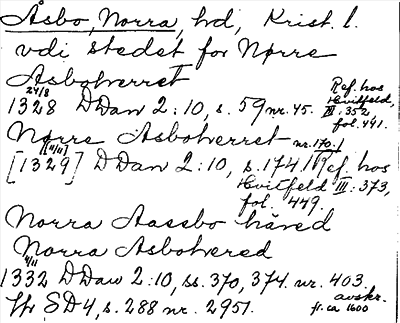 Åsbo, Norra, hd, Krist. l.
vdi stedet for Nørre
Åsbotverret
24/8
1328 DDan 2:10, s. 59 nr. 45. Ref. hos Hvitfeld, III: 352, fol. 441.
Nørre Asbotverret nr. 170.
[11/11]
[1329] DDan 2:10, s. 174. (Ref. hos
Hvitfeld III: 373,
fol. 449.
Norra Aassbo häred
Norra Asbohered
9/11
1332 DDan 2:10, ss. 370, 374. nr. 403.
Jfr SD4, s. 288 nr. 2951. avskr. fr. ca 1600